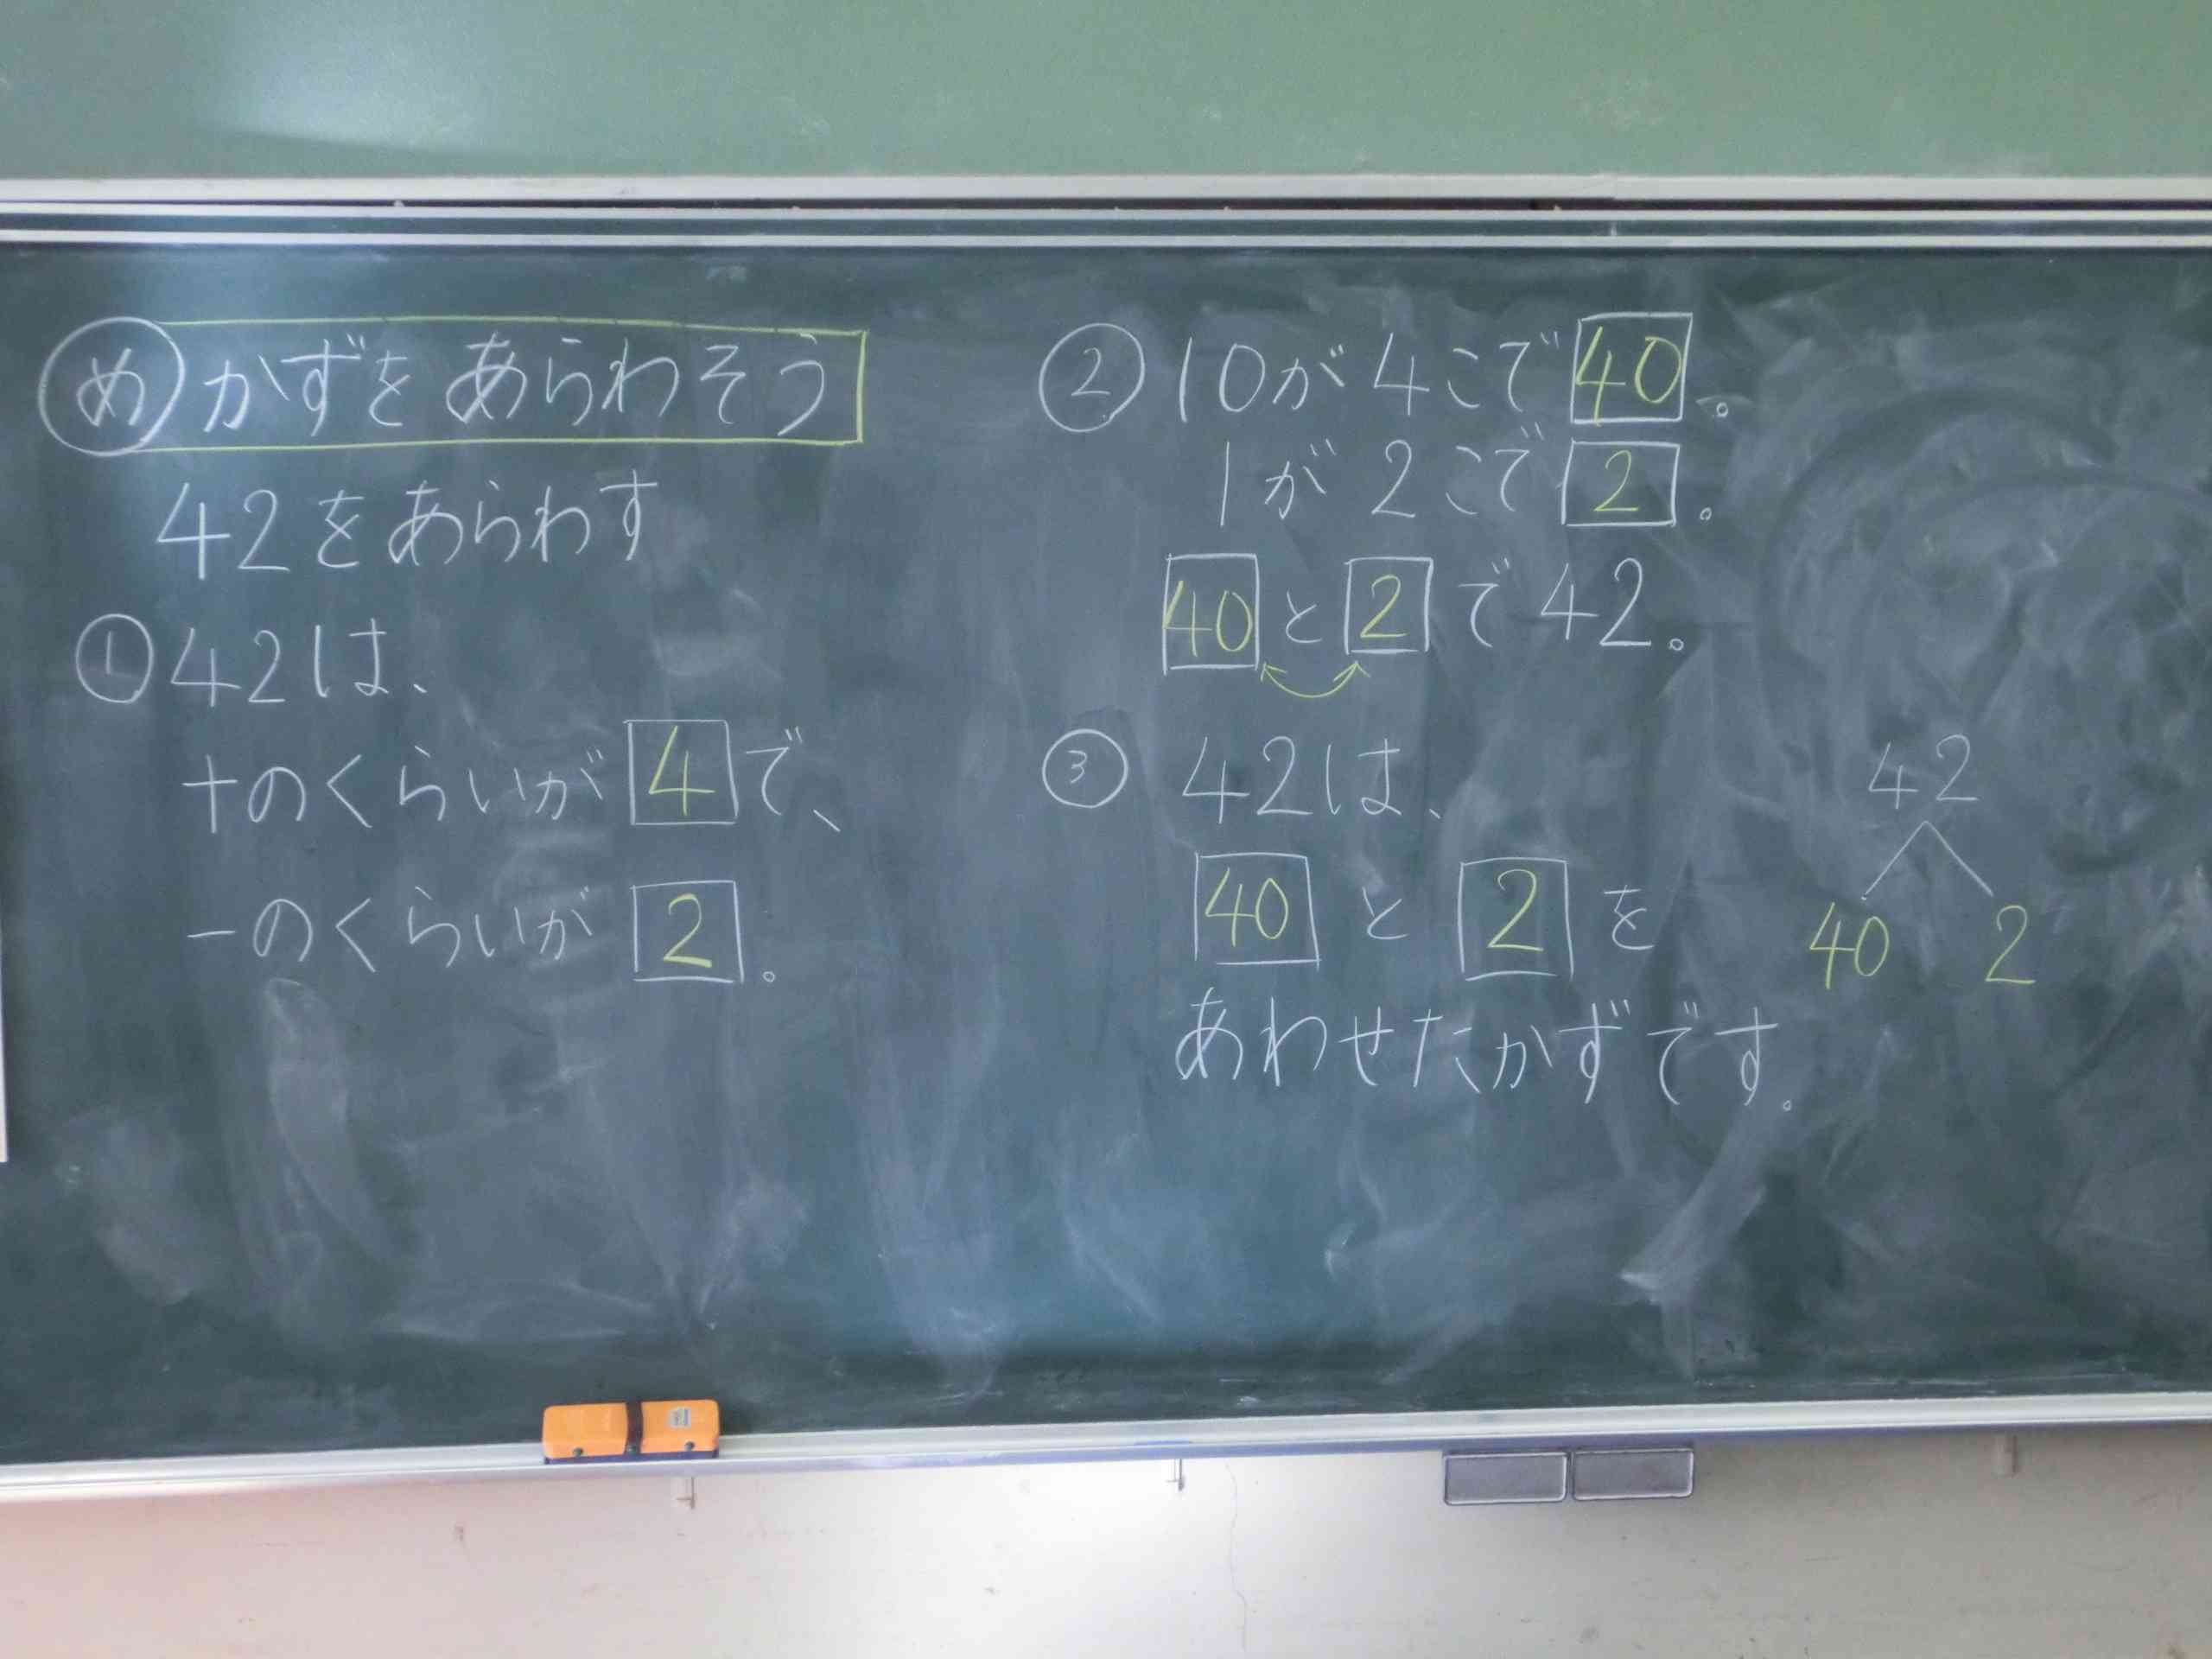 め かずを あらわそう
42をあらわす
① 42は、
十のくらいが 4 で、
一のくらいが 2 。
② 10が 4こで 40 。
1が 2こで 2 。
40 と 2 で 42。
③ 42は、
40 と 2 を
あわせたかずです。
42
40 2